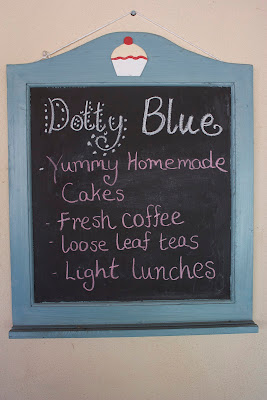 Dotty Blue
- Yummy Homemade
Cakes
- Fresh coffee
- loose leaf teas
- Light lunches